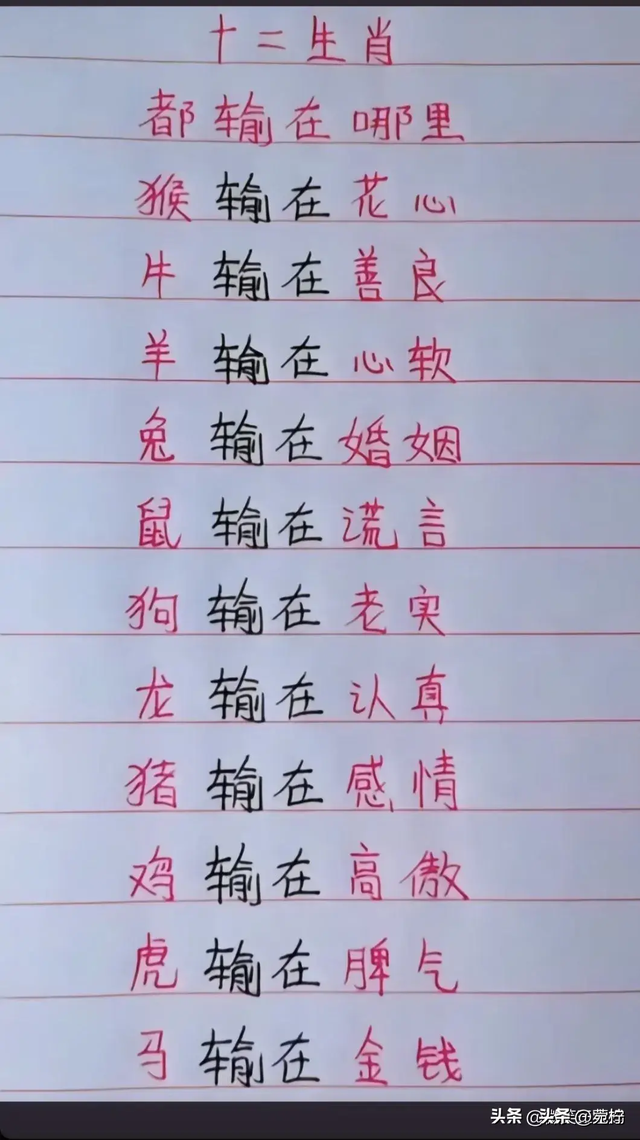 十二生肖
都输在哪里
猴输在花心
牛输在善良
羊输在心软
兔输在婚姻
鼠输在谎言
狗输在老实
龙输在认真
猪输在感情
鸡输在高傲
虎输在脾气
马输在金钱
头条 @头条 @芫柠